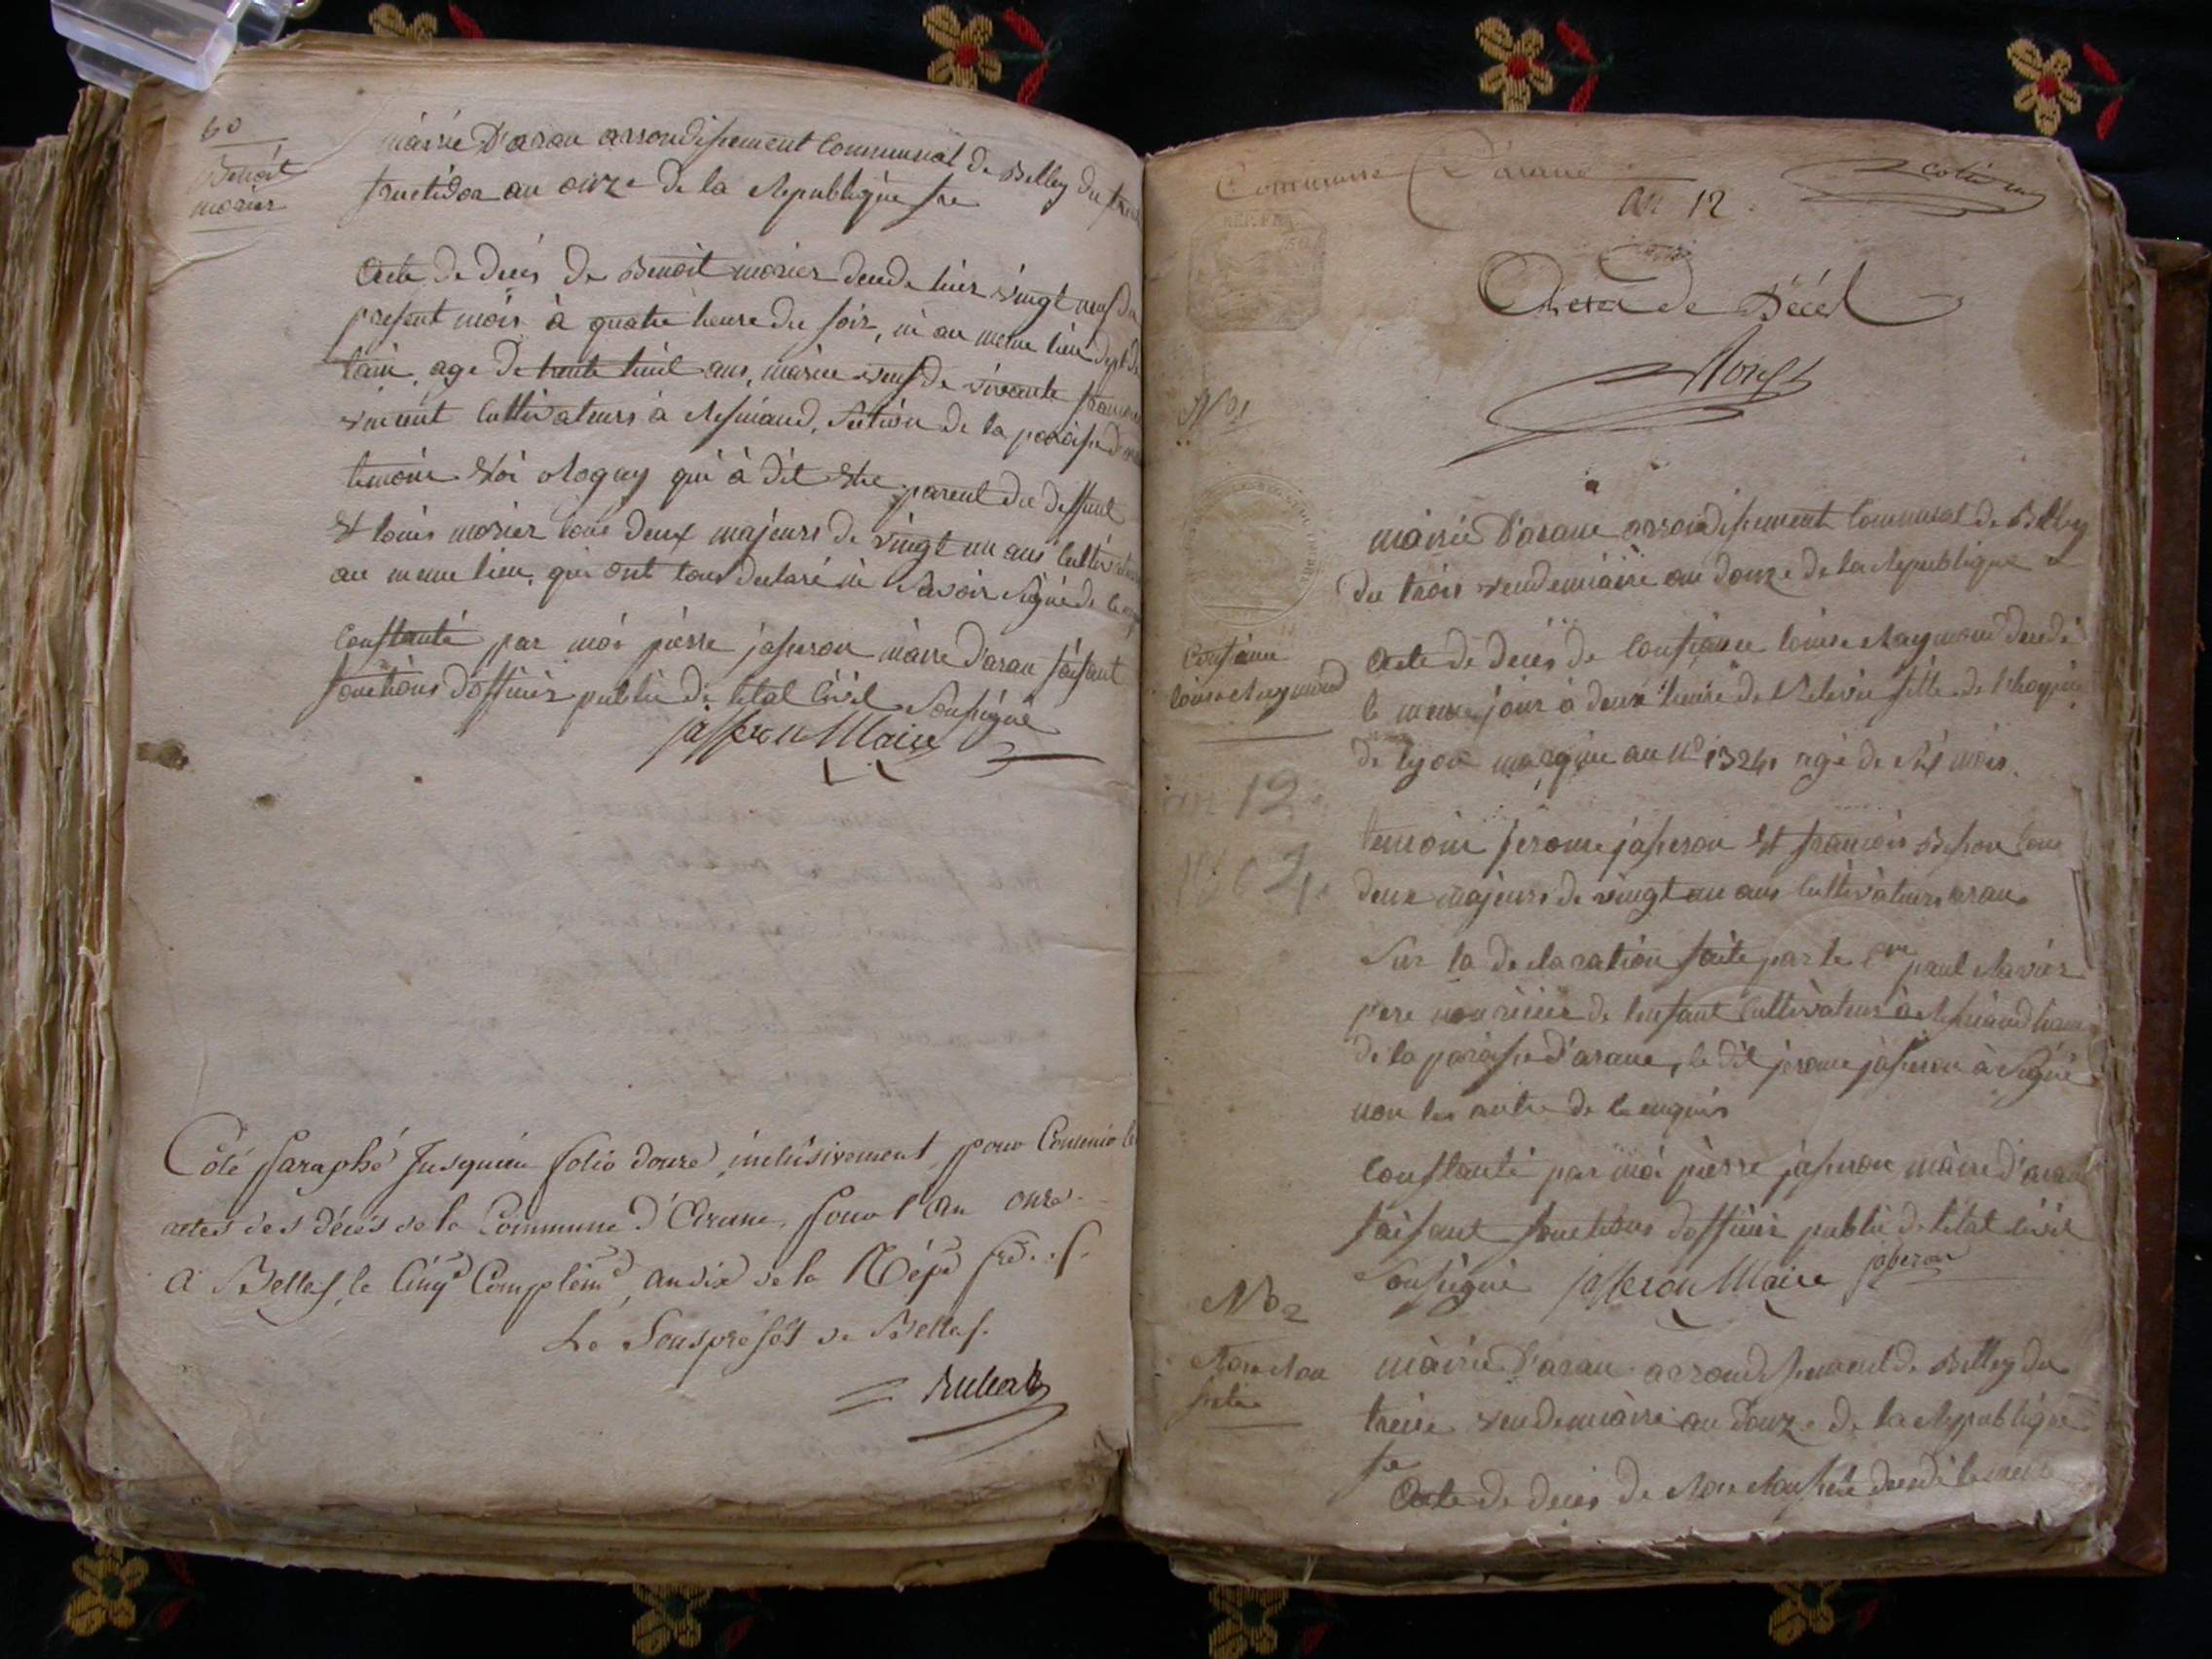 60
Benoit
morier
mairie D'aran arrondissement Communal de Belley du
fructidor an onze de la Republique fre
Acte de deces de Benoit morier decede hier vingt neuf du
present mois à quatre heure du soir, né au meme lieu dept de
lain, age de trente huit ans, marié
vincent Cultivateurs à Resinand, Section de la paroisse
temoin Loi Mogay qui à dit Etre parent du deffunt
Et louis morier tous deux majeurs de vingt un ans Cultivateurs
au meme lieu, qui ont tous declaré ne Savoir Signé de
Constanté par moi pierre jasseron maire d'aran faisant
fonctions d'officier public de letat Civil Soussigné
jasseron Maire
Côté Paraphé Jusqu'au folio douze inclusivement pour Contenir les
actes des décès de la Commune d'Arane, pour l'an onze
A Belley, le Cinqe Complémre, an dix de la Répe fre.
Le Souspréfet de Belley.
Rubat
Commune D'arane
an 12
REP. FRA.
de Décès
No 1
mairie D'arane arrondissement Communal de Belley
du trois vendemiaire an douze de la Republique
Constance
louise Raymond
Acte de deces de Constance louise Raymond decedé
le meme jour à deux heure de Relevée fille de l'hospice
de lyon au no 1324 agé de Six mois.
an 12
temoin jerome jasseron Et francois Besson tous
deux majeurs de vingt un ans Cultivateurs aran
Sur la declaration faite par le Cen paul Ravier
pere nourricier de lenfant Cultivateur à Resinand
de la paroisse d'arane, le dit jerome jasseron à Signé
non les autre de ce enquis
Constanté par moi pierre jasseron maire d'aran
faisant fonctions d'officier public de letat Civil
Soussigné jasseron Maire jasseron
No 2
mairie D'aran arrondissement de Belley du
treize vendemiaire an Douze de la Republique
fre
Acte de deces de decedé le meme